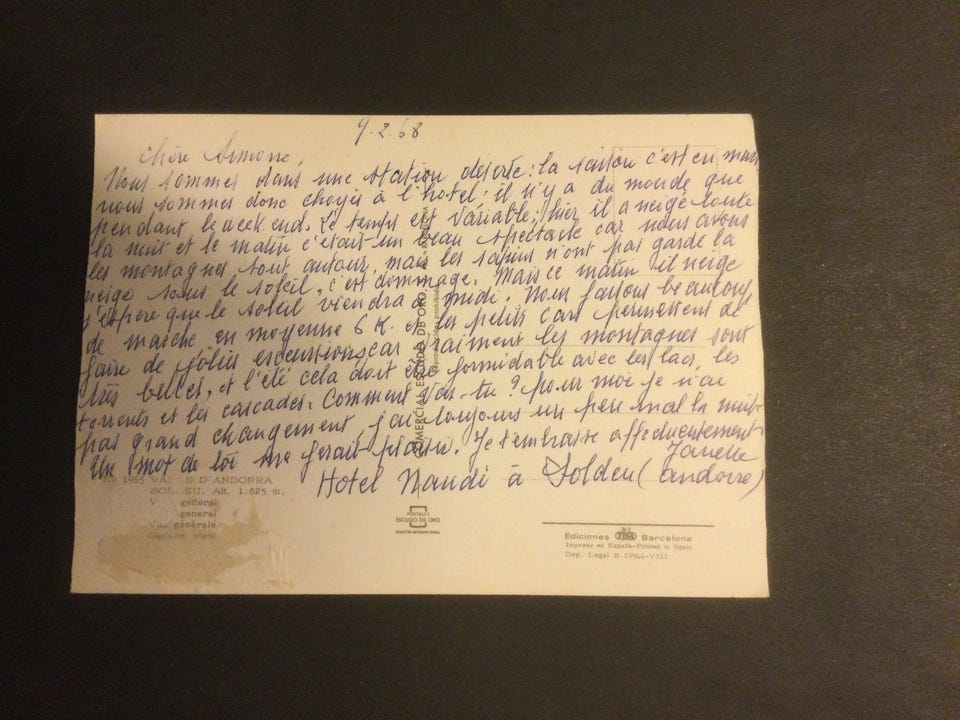 9.2.68
Chère Simone,
Nous sommes dans une station déserte : la saison c'est en mars
nous sommes donc choyés à l'hotel ; il n'y a du monde que
pendant le week end. Le temps est variable ; hier il a neigé toute
la nuit et le matin c'était un beau spectacle car nous avons
les montagnes tout autour, mais les sapins n'ont pas gardé la
neige sous le soleil, c'est dommage. Mais ce matin il neige
j'espère que le soleil viendra à midi. Nous faisons beaucoup
de marche en moyenne 6 K. et les petits cars permettent de
faire de jolies excursions car les montagnes sont
très belles, et l'été cela doit être formidable avec les lacs, les
torrents et les cascades. Comment vas-tu ? pour moi je n'ai
pas grand changement, j'ai toujours un peu mal la nuit
Un mot de toi me ferait plaisir. Je t'embrasse affectueusement
Hotel Naudi à Soldeu (Andorre)
COMERCIAL ESCUDO DE ORO, BARCELONA
Reproducciones prohibidas
1965 VALLS D'ANDORRA
SOLDEU. AR. 1.825 m.
general
general
Vue générale
General view
POSTALES
ESCUDO DE ORO
Ediciones FISA Barcelona
Impreso en España-Printed in Spain
Dep. Legal B. 19944-VIII